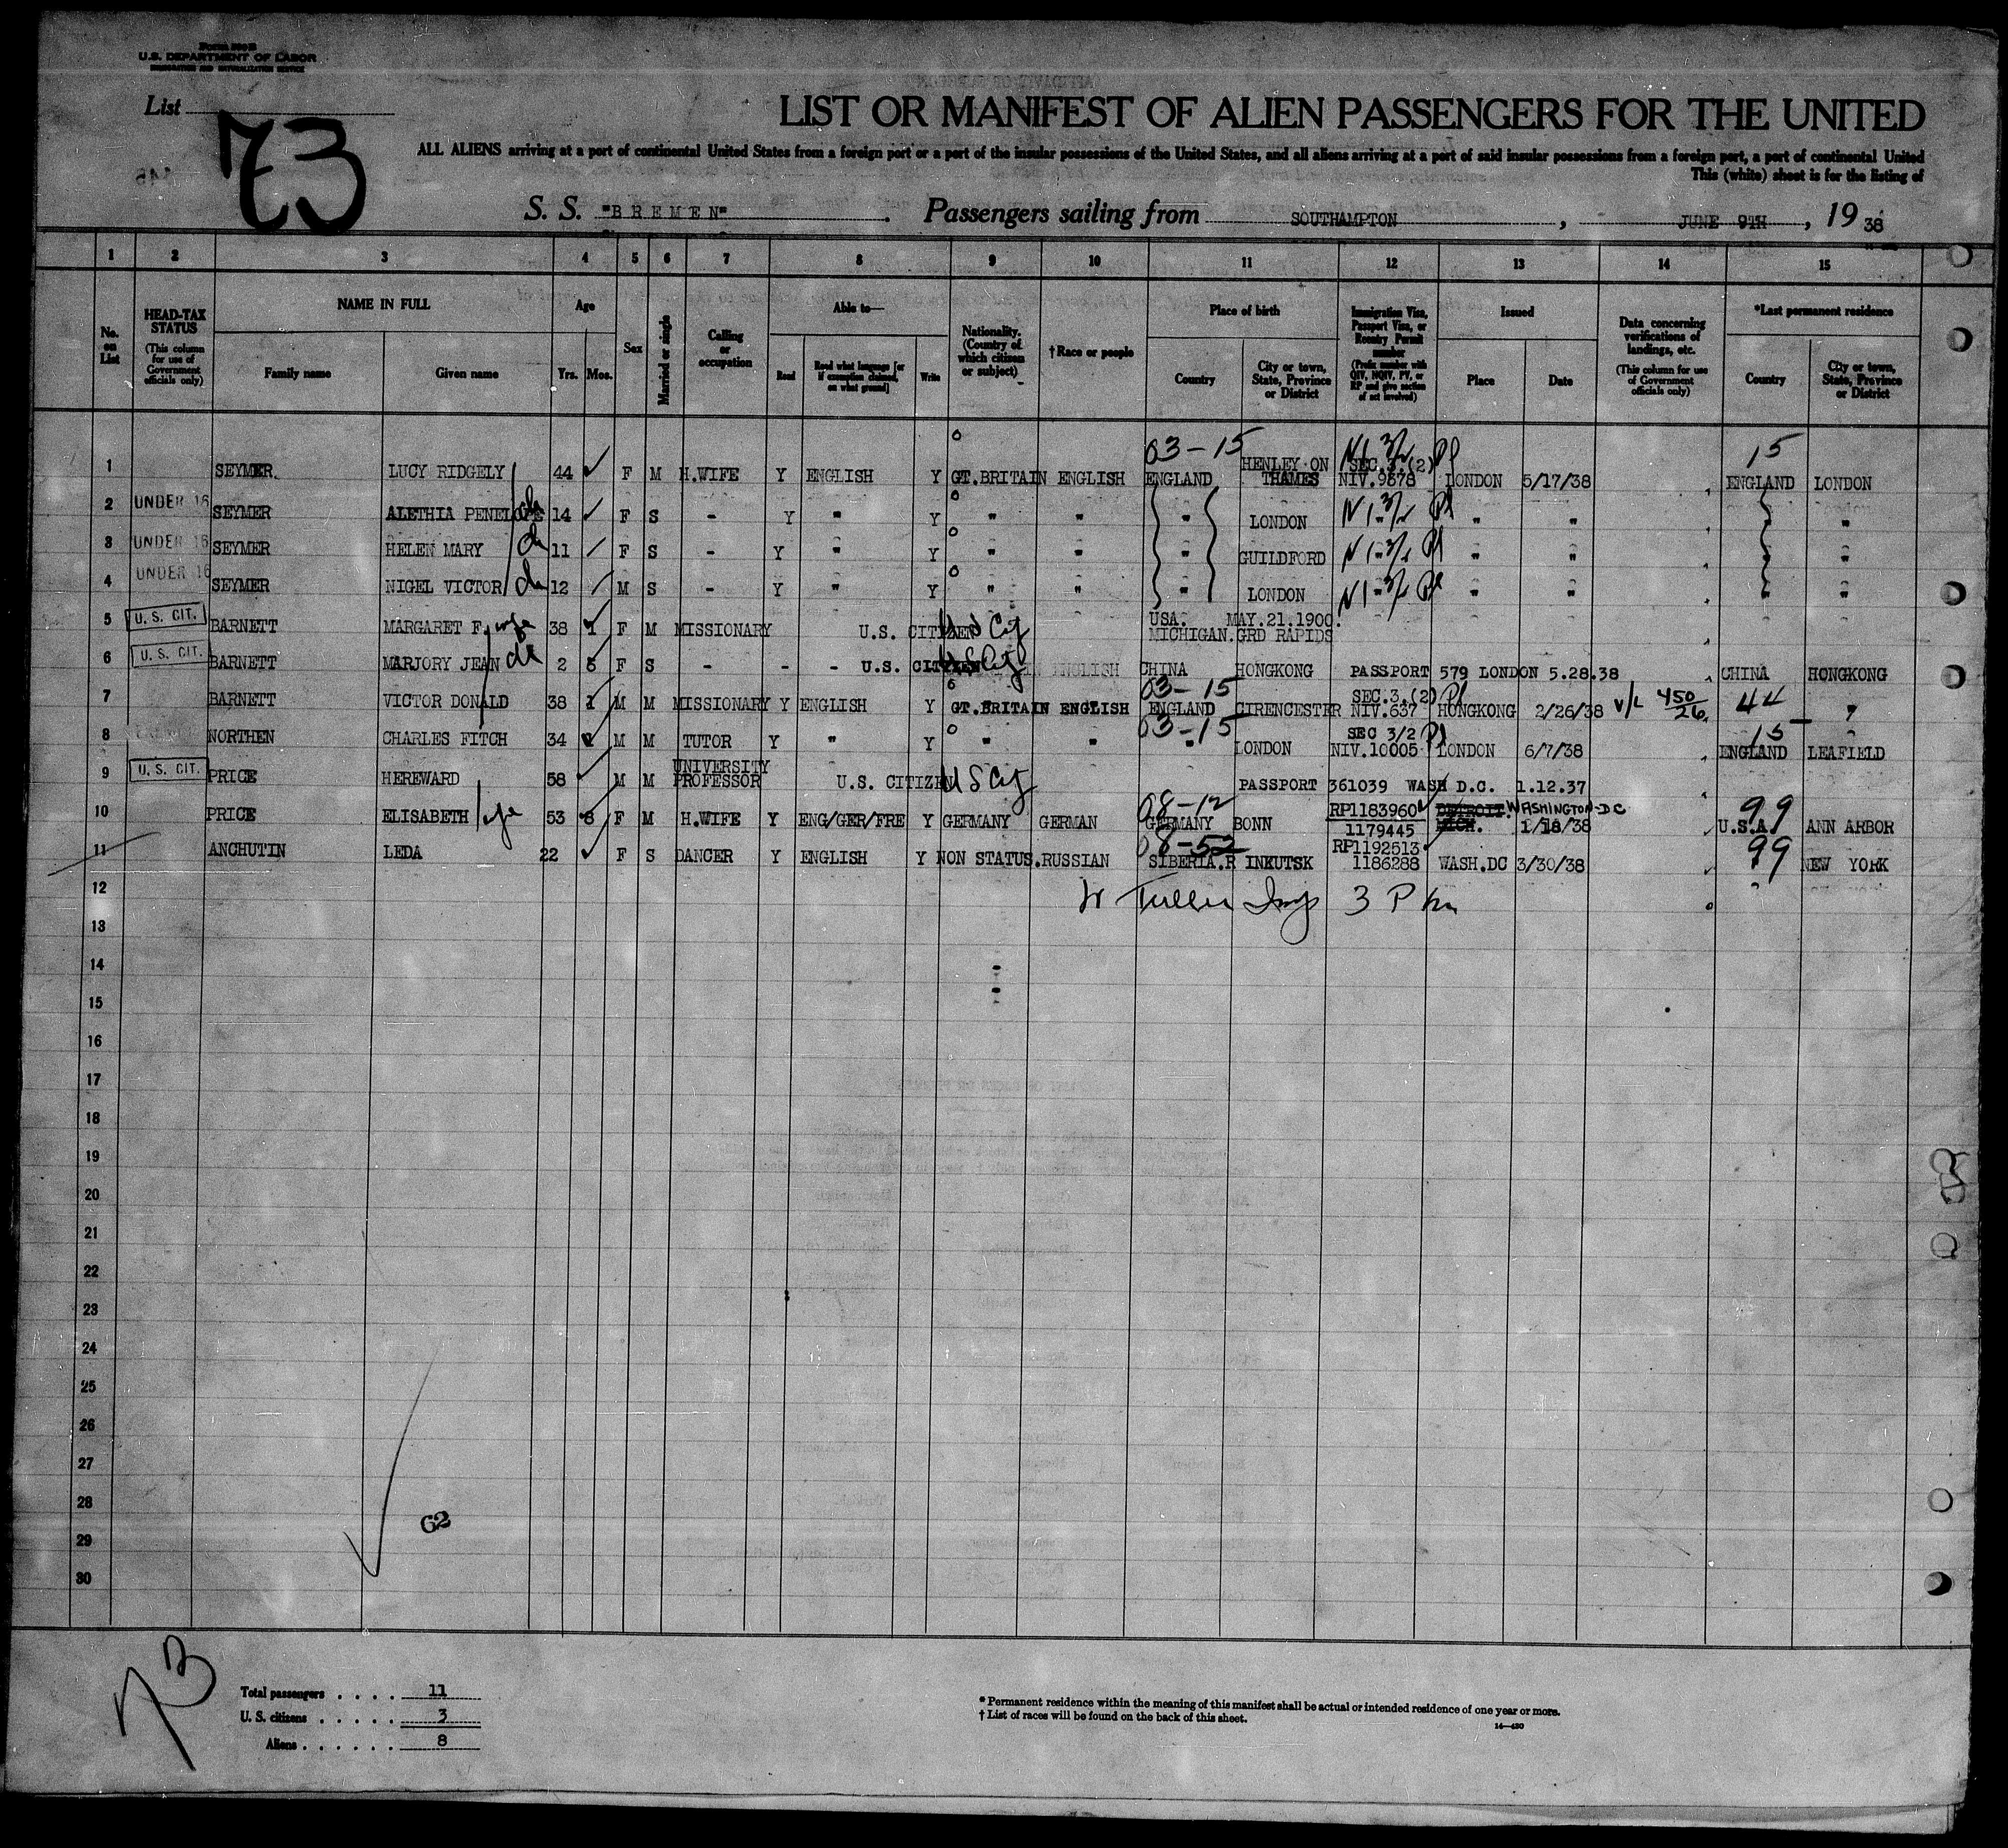 Form 500 B
U.S. DEPARTMENT OF LABOR
IMMIGRATION AND NATURALIZATION SERVICE
List
73
LIST OR MANIFEST OF ALIEN PASSENGERS FOR THE UNITED
ALL ALIENS arriving at a port of continental United States from a foreign port or a port of the insular possessions of the United States, and all aliens arriving at a port of said insular possessions from a foreign port, a port of continental United
This (white) sheet is for the listing of
S. S. "BREMEN". Passengers sailing from SOUTHAMPTON, JUNE 9TH, 19 38
1 2 3 4 5 6 7 8 9 10 11 12 13 14 15
No. on List
HEAD-TAX STATUS (This column for use of Government officials only)
NAME IN FULL
Family name Given name
Age
Yrs. Mos.
Sex
Married or single
Calling or occupation
Able to—
Read Read what language [or if exemption claimed, on what ground] Write
Nationality. (Country of which citizen or subject)
†Race or people
Place of birth
Country City or town, State, Province or District
Immigration Visa, Passport Visa, or Reentry Permit number (Prefix number with QIV, NQIV, PV, or RP and give section of act involved)
Issued
Place Date
Data concerning verifications of landings, etc. (This column for use of Government officials only)
*Last permanent residence
Country City or town, State, Province or District
03-15 15
1 SEYMER. LUCY RIDGELY 44 F M H.WIFE Y ENGLISH Y GT.BRITAIN ENGLISH ENGLAND HENLEY ON THAMES SEC.3.(2) NIV.9878 LONDON 5/17/38 ENGLAND LONDON
2 UNDER 16 SEYMER ALETHIA PENELOPE 14 F S - Y " Y " " " LONDON " " "
3 UNDER 16 SEYMER HELEN MARY 11 F S - Y " Y " " " GUILDFORD " " "
4 UNDER 16 SEYMER NIGEL VICTOR 12 M S - Y " Y " " " LONDON " " "
5 U. S. CIT. BARNETT MARGARET F. wife 38 1 F M MISSIONARY U.S. CITIZEN US Cit USA. MAY.21.1900. MICHIGAN.GRD RAPIDS
6 U. S. CIT. BARNETT MARJORY JEAN 2 5 F S - - - U.S. CITIZEN US Cit CHINA HONGKONG PASSPORT 579 LONDON 5.28.38 CHINA HONGKONG
03-15
7 BARNETT VICTOR DONALD 38 1 M M MISSIONARY Y ENGLISH Y GT.BRITAIN ENGLISH ENGLAND CIRENCESTER SEC.3.(2) NIV.637 HONGKONG 2/26/38 V/L 450/26 44 "
03-15 15
8 NORTHEN CHARLES FITCH 34 M M TUTOR Y " Y " " " LONDON SEC 3/2 NIV.10005 LONDON 6/7/38 ENGLAND LEAFIELD
9 U. S. CIT. PRICE HEREWARD 58 M M UNIVERSITY PROFESSOR U.S. CITIZEN US Cit PASSPORT 361039 WASH D.C. 1.12.37
08-12 99
10 PRICE ELISABETH 53 8 F M H.WIFE Y ENG/GER/FRE Y GERMANY GERMAN GERMANY BONN RP1183960 1179445 DETROIT. MICH. WASHINGTON-DC 1/18/38 U.S.A. ANN ARBOR
08-52 99
11 ANCHUTIN LEDA 22 F S DANCER Y ENGLISH Y NON STATUS. RUSSIAN SIBERIA.R INKUTSK RP1192513 1186288 WASH.DC 3/30/38 NEW YORK
12
13
14
15
16
17
18
19
20
21
22
23
24
25
26
27
28
29
30
62
73
Total passengers . . . . 11
U. S. citizens . . . . . 3
Aliens . . . . . . 8
* Permanent residence within the meaning of this manifest shall be actual or intended residence of one year or more.
† List of races will be found on the back of this sheet.
14—430